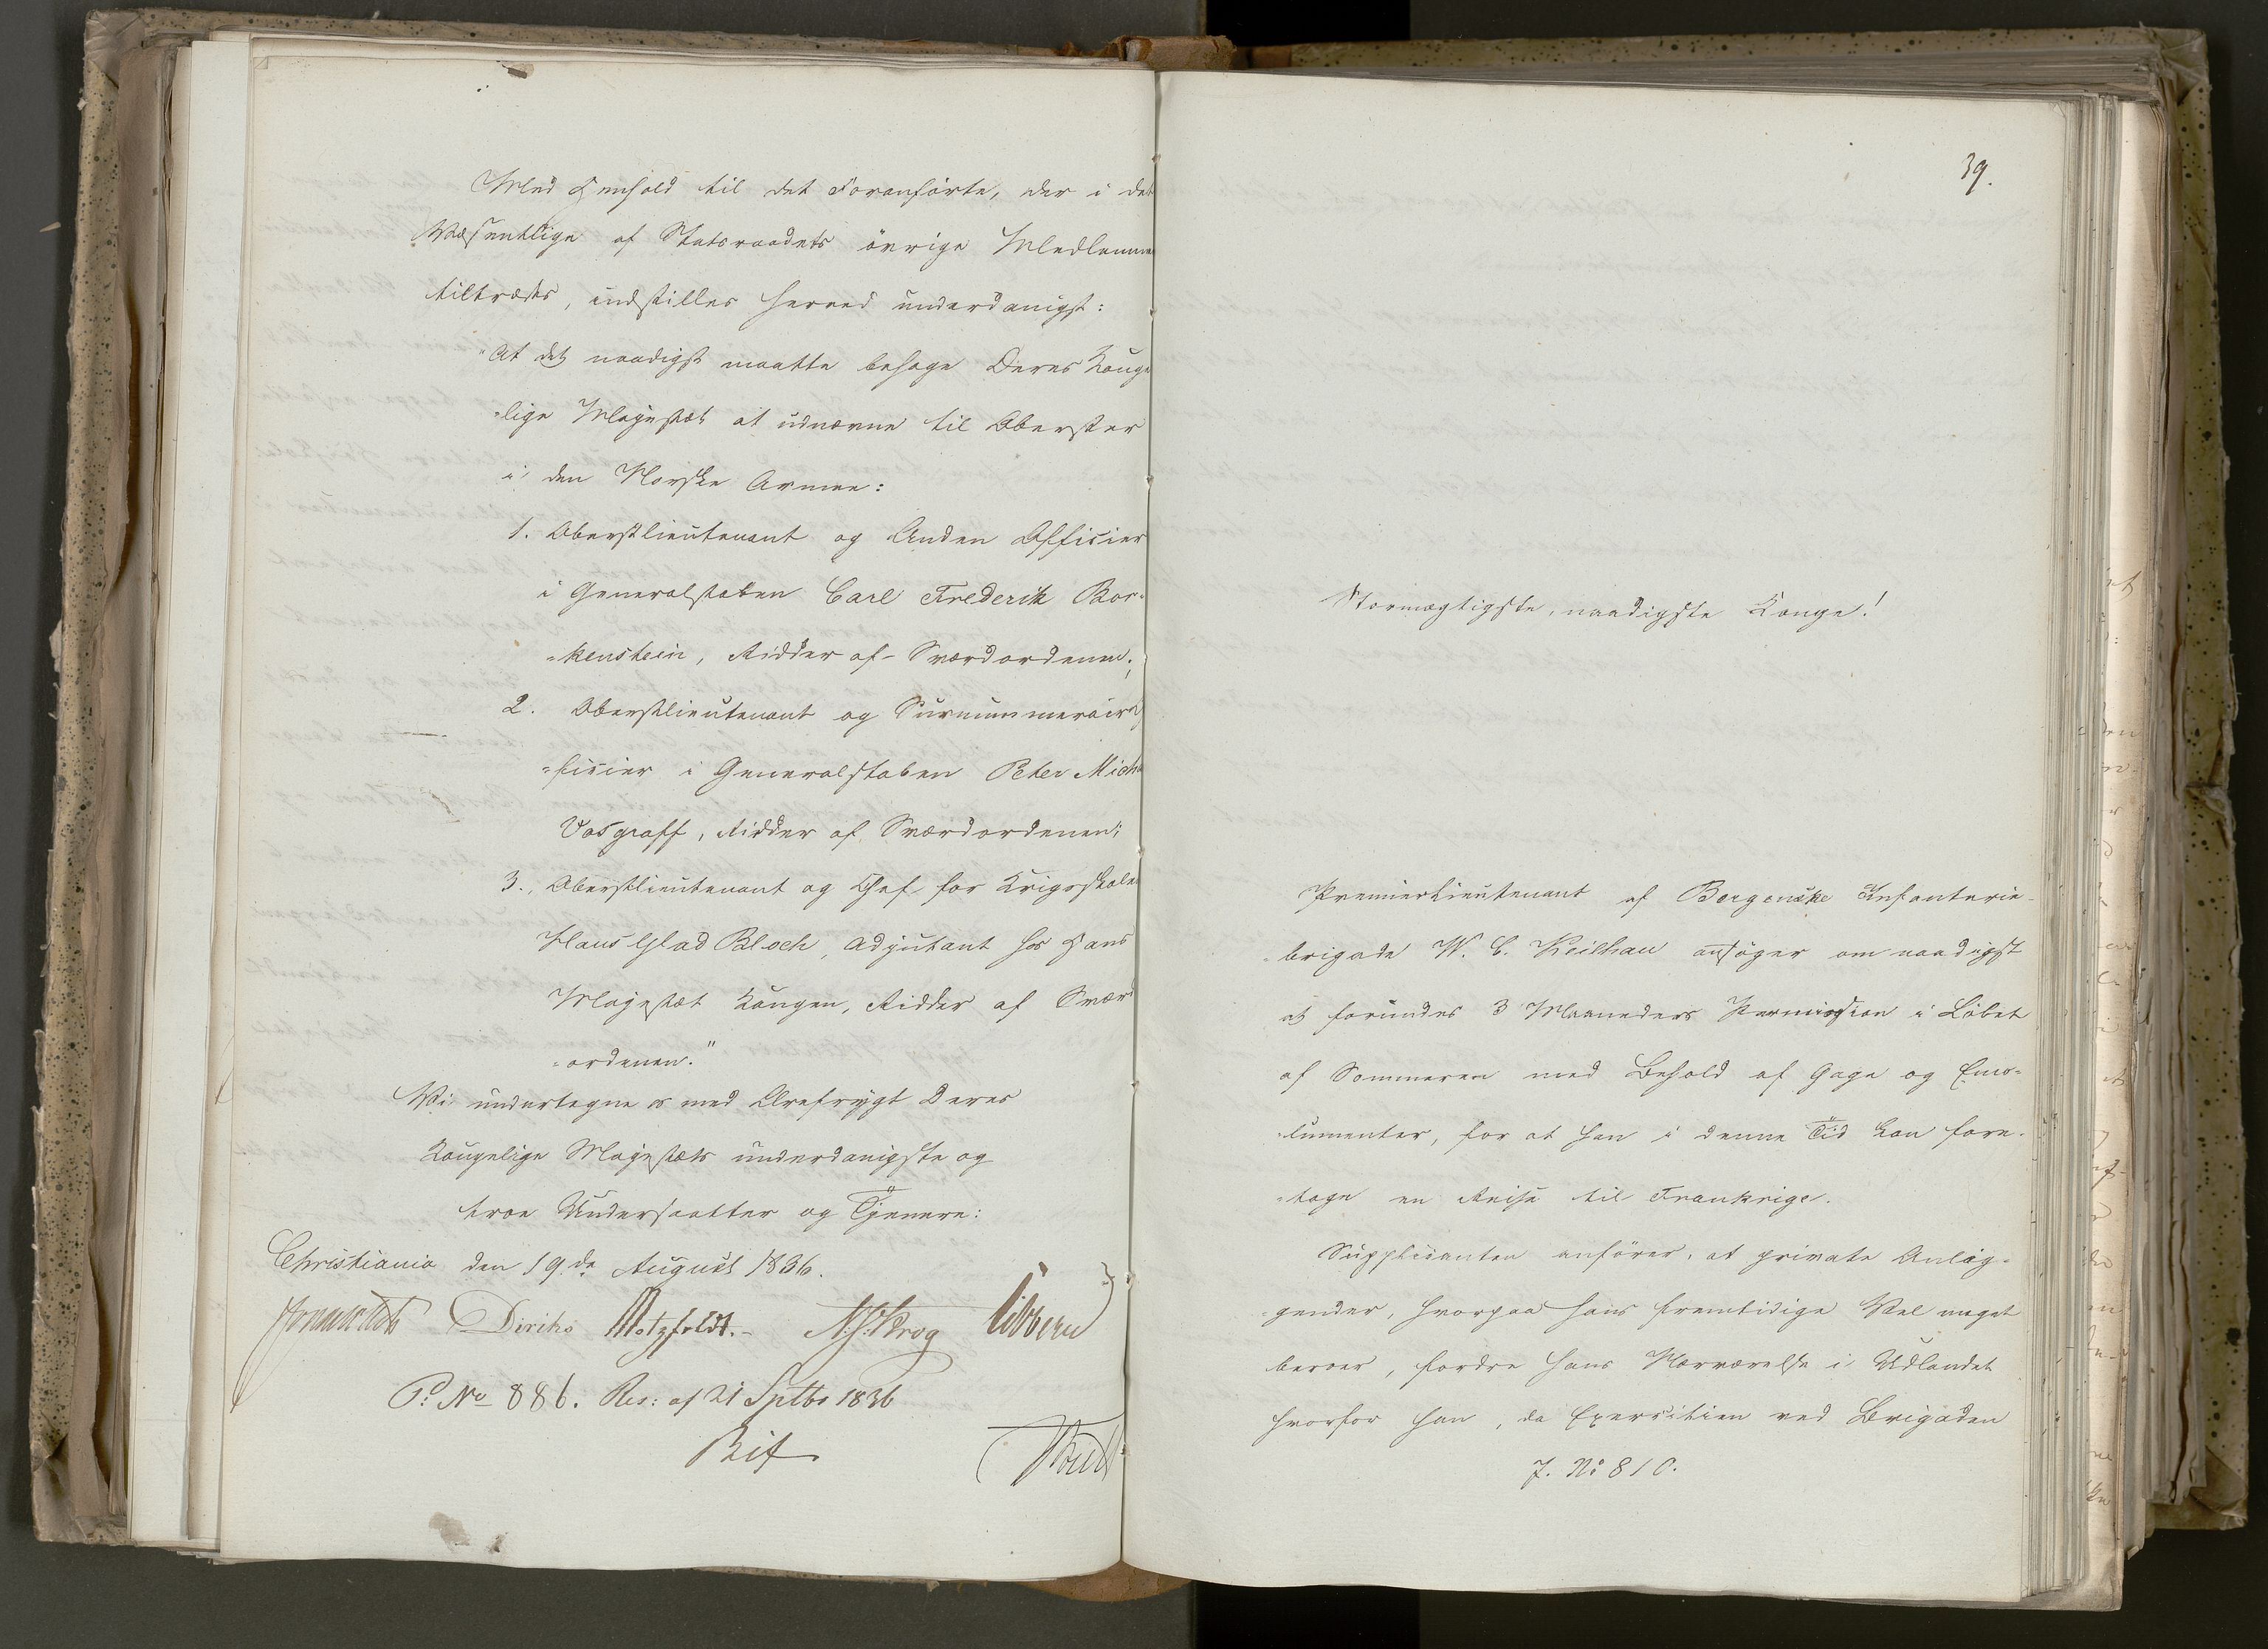 Med Henhold til det Foranførte, der i det
Væsentlige af Statsraadets övrige Medlemmer
tiltrædes, indstilles herved underdanigst:
"At det naadigst maatte behage Deres Konge
-lige Majestæt at udnævne til Oberster
i den Norske Armee:
1. Oberstlieutenant og Anden Officier
i Generalstaben Carl Frederik Bor-
-kenstein, Ridder af Sværdordenen;
2. Oberstlieutenant og Surnummerair Of
-ficier i Generalstaben Peter Micha
Vosgraff, Ridder af Sværdordenen;
3., Oberstlieutenant og Chef for Krigsskolen
Hans Glad Bloch, Adjutant hos Hans
Majestæt Kongen, Ridder af Sværd
-ordenen."
Vi undertegne os med Ærefrygt Deres
Kongelige Majestæts underdanigste og
troe Undersaatter og Tjenere:
Christiania den 19de August 1836.
Diriks Motzfeldt. Krog Vibbern
P. No 886. Res: af 21 Septbr 1836
39.
Stormægtigste, naadigste Konge!
Premierlieutenant af Bergenske Infanterie-
-brigade W. C. Keilhau ansøger om naadigst
at forundes 3 Maaneders Permission i Löbet
af Sommeren med Behold af Gage og Emo-
-lumenter, for at han i denne Tid kan fore-
-tage en Reise til Frankrige.
Supplicanten anförer, at private Anlig-
-gender, hvorpaa hans fremtidige Vel meget
beroer, fordre hans Nærværelse i Udlandet
hvorfor han, da Exercitien ved Brigaden
J. No 810.